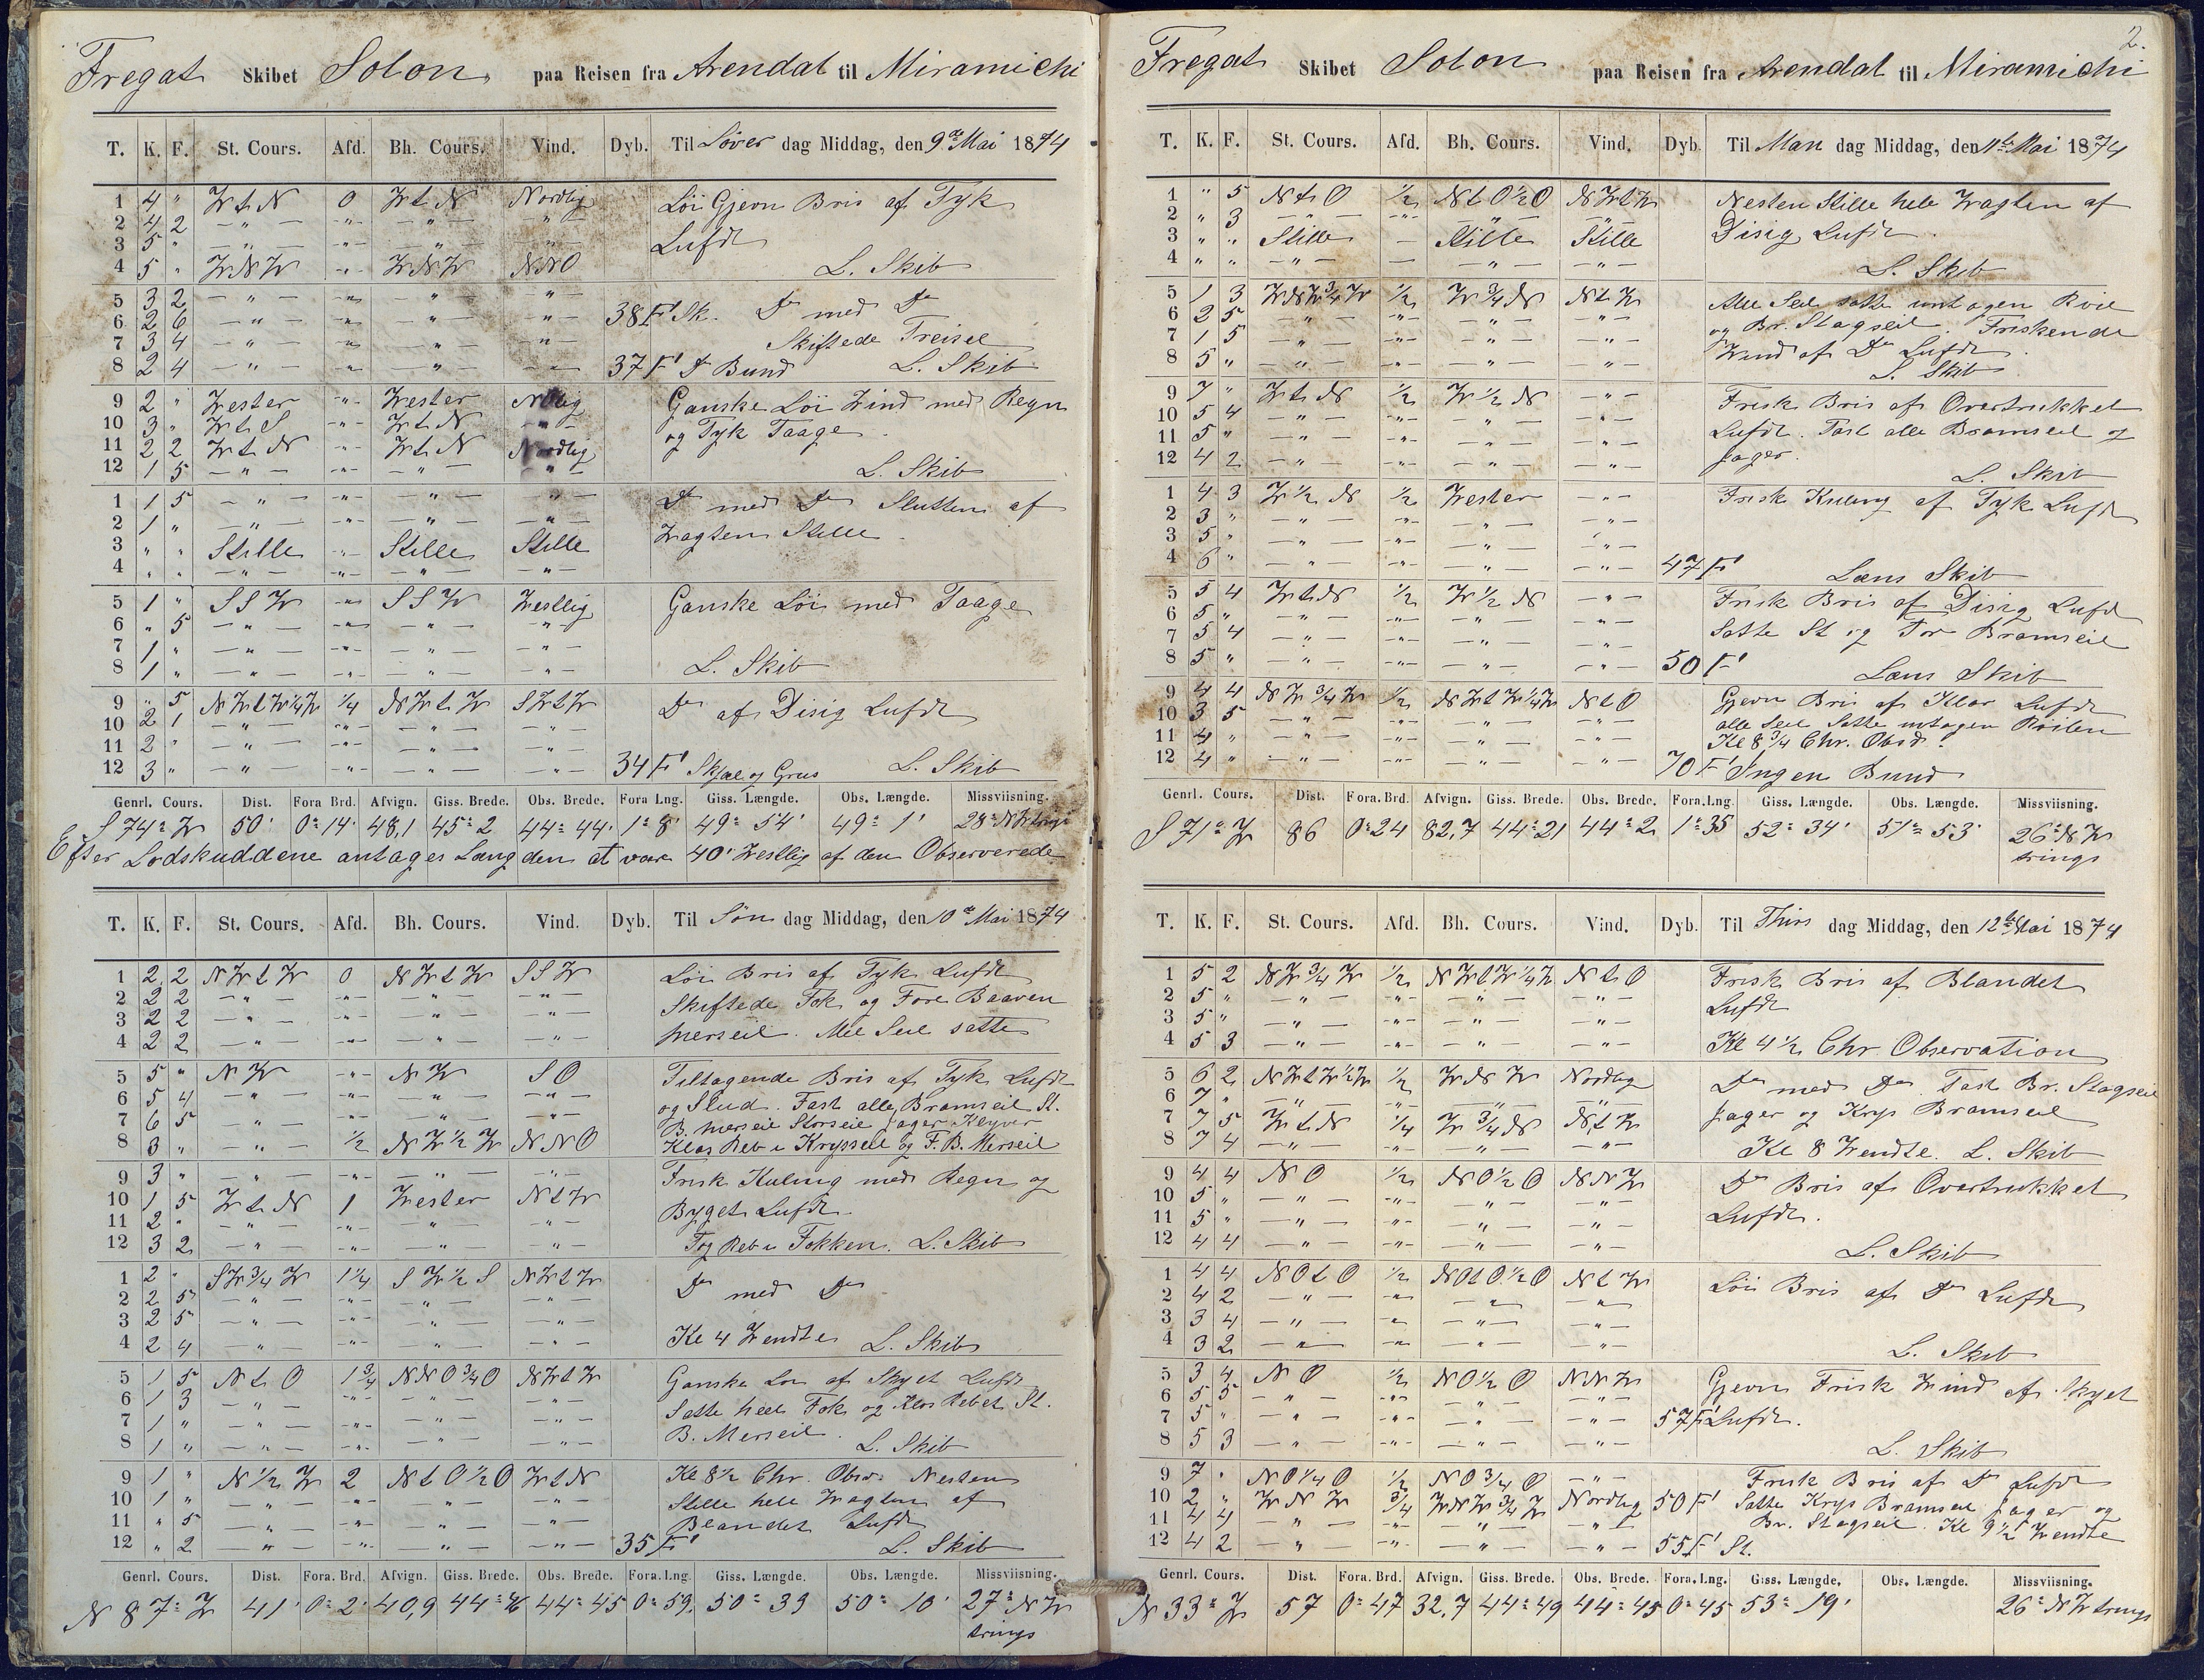 Fregat Skibet Solon paa Reisen fra Arendal til Miramichi
T. K. F. St. Cours. Afd. Bh. Cours. Vind. Dyb. Til Løver dag Middag, den 9de Mai 1874
1 4 " W t N 0 W t N Nordlig Löi Gjevn Bris af Tyk
2 4 2 — " — - " - — " — — " — Lufdt
3 5 " — " — - " - — " — — " —
4 5 " W N W - " - W N W N N O L. Skib
5 3 2 — " — - " - — " — — " —
6 2 6 — " — - " - — " — — " — 38 F Sk. Do med Do
7 3 4 — " — - " - — " — — " — Skiftede Treisel
8 2 4 — " — - " - — " — — " — 37 F Do Bund L. Skib
9 2 " Wester - " - Wester NOlig Ganske Löi Wind med Regn
10 3 " W t S - " - W t N — " — og Tyk Taage
11 2 2 W t N - " - W t N Nordlig
12 1 5 — " — - " - — " — — " — L. Skib
1 1 5 — " — - " - — " — — " — Do med Do Slutten af
2 1 " — " — - " - — " — — " — Wagten Stille
3 " " Stille - " - Stille Stille
4 " " — " — - " - — " — — " —
5 1 " S S W - " - S S W Westlig Ganske Löi med Taage
6 " 5 — " — - " - — " — — " —
7 1 " — " — - " - — " — — " —
8 1 " — " — - " - — " — — " — L. Skib
9 " 5 N W t W 1/4 W 1/4 N W t W S W t W Do af Disig Lufdt
10 2 1 — " — - " - — " — — " —
11 2 " — " — - " - — " — — " —
12 3 " — " — - " - — " — — " — 34 F Skjæl og Grus L. Skib
Genrl. Cours. Dist. Fora Brd. Afvign. Giss. Brede. Obs. Brede. Fora Lng. Giss. Længde. Obs. Længde. Missviisning.
S 74° W 50' 0° 14' 48,1 45° 2 44° 44' 1° 8' 49° 54' 49° 1' 28° N W
Efter Lodskuddene antages Længden at være 40' Westlig af den Observerede
T. K. F. St. Cours. Afd. Bh. Cours. Vind. Dyb. Til Søn dag Middag, den 10de Mai 1874
1 2 2 N W t W 0 N W t W S S W Löi Bris af Tyk Lufdt
2 2 2 — " — - " - — " — — " — Skiftede Fok og Fore Baaven
3 2 2 — " — - " - — " — — " — Merseil. Alle Seil satte
4 2 2 — " — - " - — " — — " —
5 5 " N W - " - N W S O Tiltagende Bris af Tyk Lufdt
6 5 4 — " — - " - — " — — " — og Slud. Fast alle Bramseil St.
7 6 5 — " — - " - — " — — " — B. Merseil Storseil Jager Klyver
8 3 " — " — 1/2 N W 1/2 W N N O Klos Reb i Krysseil og F. B. Merseil
9 3 " — " — - " - — " — — " — Frisk Kuling med Regn og
10 1 5 W t N 1 Wester N t W Byget Lufdt
11 2 " — " — - " - — " — — " —
12 3 2 — " — - " - — " — — " — Tog Reb i Fokken. L. Skib
1 2 " S W 3/4 W 1 1/4 S W 1/2 S N W t W Do med Do
2 2 5 — " — - " - — " — — " —
3 2 5 — " — - " - — " — — " —
4 2 4 — " — - " - — " — — " — Kl 4 Wendte L. Skib
5 1 5 N t O 1 3/4 N N O 3/4 O N W t W Ganske Löi af Skyet Lufdt
6 1 3 — " — - " - — " — — " — Satte heel Fok og Klos Rebet St.
7 1 " — " — - " - — " — — " — B. Merseil
8 1 " — " — - " - — " — — " — L. Skib
9 1 " N 1/2 W 2 N t O 1/2 O W t N Kl 8 1/2 Chr. Obsv. Nesten
10 1 " — " — - " - — " — — " — Stille hele Wagten af
11 " 5 — " — - " - — " — — " — Blandet Lufdt
12 " 2 — " — - " - — " — — " — 35 F L. Skib
Genrl. Cours. Dist. Fora. Brd. Afvign. Giss. Brede. Obs. Brede. Fora. Lng. Giss. Længde. Obs. Længde. Missviisning.
N 87° W 41' 0° 2' 40,9 44° 46 44° 45 0° 59' 50° 39 50° 10' 27° N W
trings
2.
Fregat Skibet Solon paa Reisen fra Arendal til Miramichi
T. K. F. St. Cours. Afd. Bh. Cours. Vind. Dyb. Til Man dag Middag, den 11te Mai 1874
1 " 5 N t O 1/2 N t O 1/2 O N W t W Nesten Stille hele Wagten af
2 " 3 — " — - " - — " — — " — Disig Lufdt
3 " " Stille — Stille Stille
4 " " — " — — — " — — " — L. Skib
5 1 3 W N W 3/4 W 1/2 W 3/4 N N t W Alle Seil satte untagen Roil
6 2 5 — " — - " - — " — — " — og Br. Stagseil. Friskende
7 1 5 — " — - " - — " — — " — Wind af Do Lufdt
8 5 " — " — - " - — " — — " — L. Skib
9 7 " W t N 1/2 W 1/2 N — " — Frisk Bris af Overtrukket
10 5 4 — " — - " - — " — — " — Lufdt. Fast alle Bramseil og
11 5 " — " — - " - — " — — " — Jager.
12 4 2 — " — - " - — " — — " — L. Skib
1 4 3 W 1/2 N 1/2 Wester — " — Frisk Kuling af Tyk Lufdt
2 3 " — " — - " - — " — — " —
3 5 " — " — - " - — " — — " —
4 6 " — " — - " - — " — — " — 47 F Læns Skib
5 5 4 W t N 1/2 W 1/2 N — " — Frisk Bris af Disig Lufdt
6 5 " — " — - " - — " — — " — Satte St og For Bramseil
7 5 4 — " — - " - — " — — " —
8 5 " — " — - " - — " — — " — 50 F Læns Skib
9 4 4 N W 3/4 W 1/2 N W t W 1/4 W N t O Gjevn Bris af Klar Lufdt
10 3 5 — " — - " - — " — — " — alle Seil Satte untagen Röilen
11 4 " — " — - " - — " — — " — Kl 8 3/4 Chr. Obsd.
12 4 " — " — - " - — " — — " — 70 F Ingen Bund
Genrl. Cours. Dist. Fora. Brd. Afvign. Giss. Brede. Obs. Brede. Forn. Lng. Giss. Længde. Obs. Længde. Missviisning.
S 71° W 86 0° 24 82,7 44° 21 44° 2 1° 35 52° 34' 51° 53' 26° N W
trings
T. K. F. St. Cours. Afd. Bh. Cours. Vind. Dyb. Til Thirs dag Middag, den 12te Mai 1874
1 5 2 N W 3/4 W 1/2 N W t W 1/4 W N t O Frisk Bris af Blandet
2 5 " — " — - " - — " — — " — Lufdt
3 5 " — " — - " - — " — — " —
4 5 3 — " — - " - — " — — " — Kl 4 1/2 Chr. Observation
5 6 2 N W t W 1/2 W 1/2 W N W Nordlig Do med Do. Fast Br. Stagseil
6 7 " — " — - " - — " — — " — Jager og Krys Bramseil
7 7 5 W t N 1/4 W 3/4 N N t W
8 7 4 — " — - " - — " — — " — Kl 8 Wendte. L. Skib
9 4 4 N O 1/2 N O 1/2 O N N W Do Bris af Overtrukket
10 5 " — " — - " - — " — — " — Lufdt.
11 5 " — " — - " - — " — — " —
12 4 4 — " — - " - — " — — " — L. Skib
1 4 4 N O t O 1/2 N O t O 1/2 O N t W Löi Bris af Do Lufdt
2 4 2 — " — - " - — " — — " —
3 3 4 — " — - " - — " — — " —
4 3 2 — " — - " - — " — — " — L. Skib
5 3 4 N O 1/2 N O 1/2 O N N W Gjevn Frisk Wind af Skyet
6 5 5 — " — - " - — " — — " —
7 5 " — " — - " - — " — — " — 57 F Lufdt.
8 5 3 — " — - " - — " — — " — L. Skib
9 7 " N O 1/4 O 1/2 N O 3/4 O — " — Frisk Bris af Do Lufdt
10 2 " W N W 3/4 W N W 3/4 W Nordlig 50 F Satte Krys Bramseil Jager og
11 4 4 — " — - " - — " — — " — Br. Stagseil. Kl 9 1/2 Wendte
12 4 2 — " — - " - — " — — " — 55 F St.
Genrl. Cours. Dist. Fora. Brd. Afvign. Giss. Brede. Obs. Brede. Fora. Lng. Giss. Længde. Obs. Længde. Missviisning.
N 33° W 57 0° 47 32,7 44° 49 44° 45 0° 45 53° 19' 26° N W trings